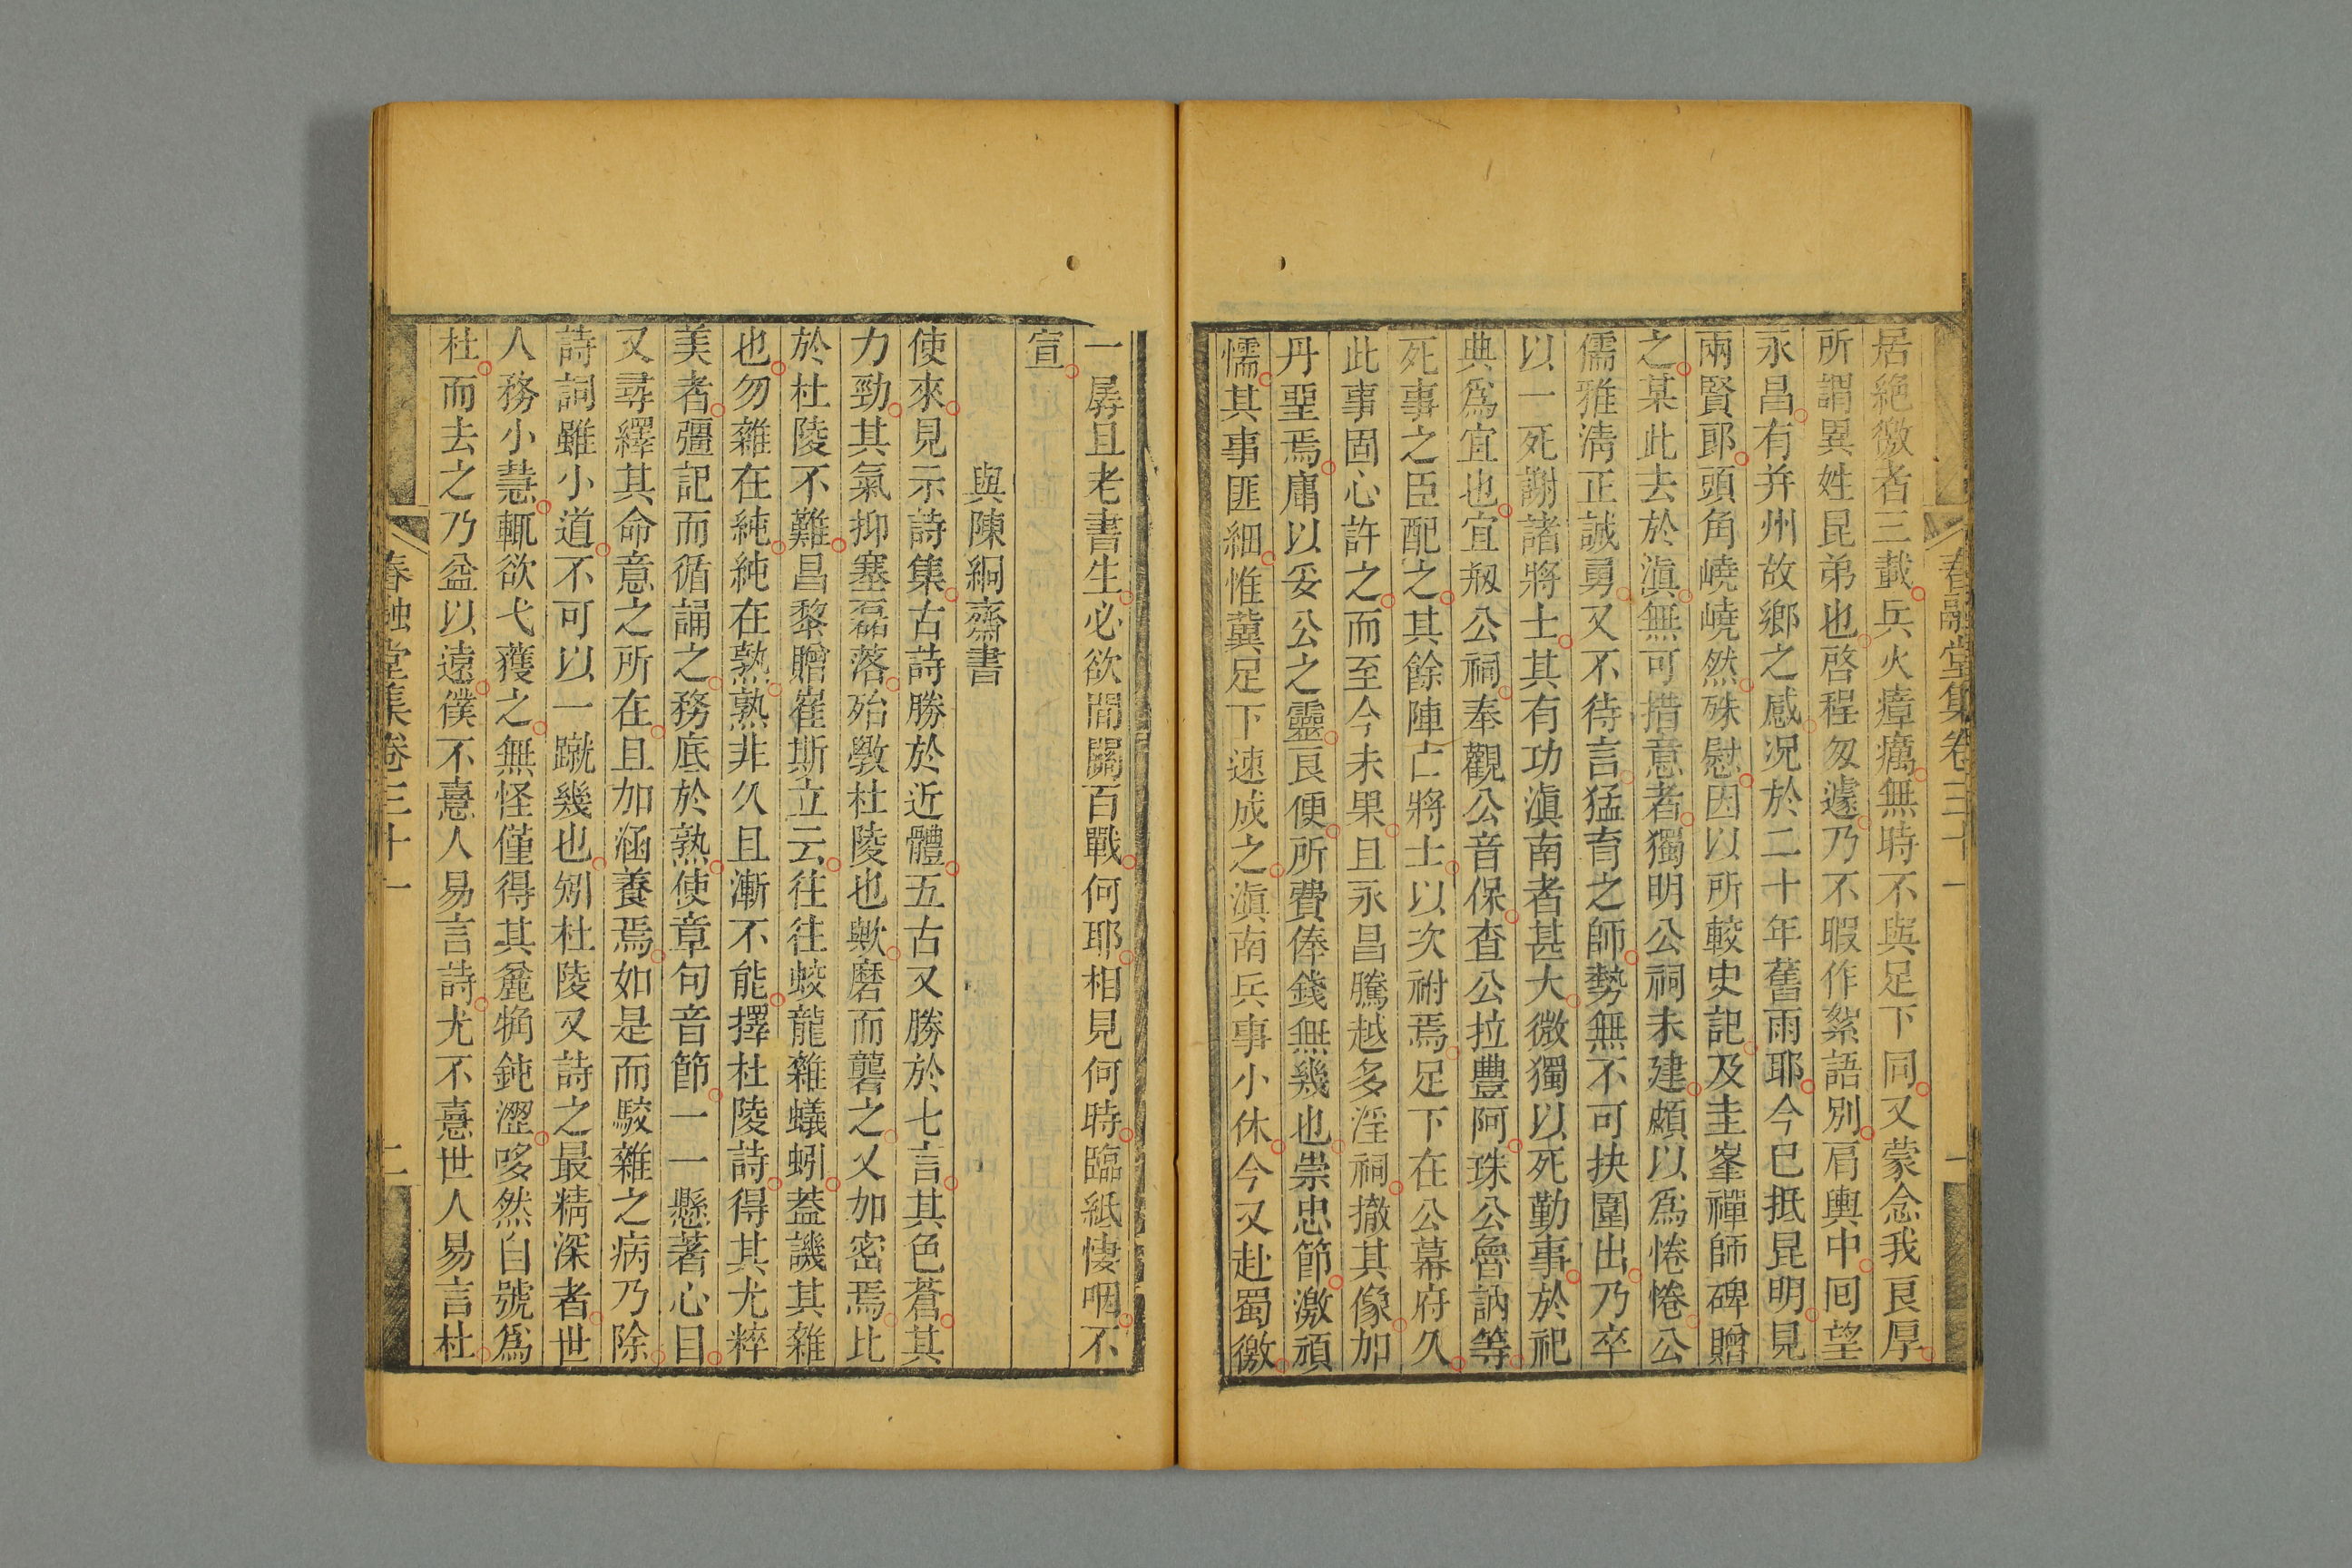 居絶徼者三載兵火瘴癘無時不與足下同又蒙念我良厚
所謂異姓昆弟也啓程匆遽乃不暇作絮語別肩輿中囘望
永昌有并州故鄉之感况於二十年舊雨耶今已抵昆明見
兩賢郎頭角嶢嶢然殊慰因以所較史記及圭峯禪師碑贈
之某此去於滇無可措意者獨明公祠未建頗以爲惓惓公
儒雅淸正誠勇又不待言猛育之師勢無不可抉圍出乃卒
以一死謝諸將士其有功滇南者甚大微獨以死勤事於祀
典爲宜也宜剏公祠奉觀公音保查公拉豐阿珠公魯訥等
死事之臣配之其餘陣亡將士以次祔焉足下在公幕府久
此事固心許之而至今未果且永昌騰越多淫祠撤其像加
丹堊焉庸以妥公之靈良便所費俸錢無幾也崇忠節激頑
懦其事匪細惟冀足下速成之滇南兵事小休今又赴蜀徼
春融堂集卷三十一
一
一孱且老書生必欲閒關百戰何耶相見何時臨紙悽咽不
宣
與陳絅齋書
使來見示詩集古詩勝於近體五古又勝於七言其色蒼其
力勁其氣抑塞磊落殆斆杜陵也歟磨而礱之乂加密焉比
於杜陵不難昌黎贈崔斯立云往往蛟龍雜蟻蚓葢譏其雜
也勿雜在純純在熟熟非久且漸不能擇杜陵詩得其尤粹
美者彊記而循誦之務底於熟使章句音節一一懸著心目
又尋繹其命意之所在且加涵養焉如是而駮雜之病乃除
詩詞雖小道不可以一蹴幾也矧杜陵又詩之最精深者世
人務小慧輒欲弋獲之無怪僅得其麄觕鈍澀哆然自號爲
杜而去之乃益以遠僕不憙人易言詩尤不憙世人易言杜
春融堂集卷三十一
二